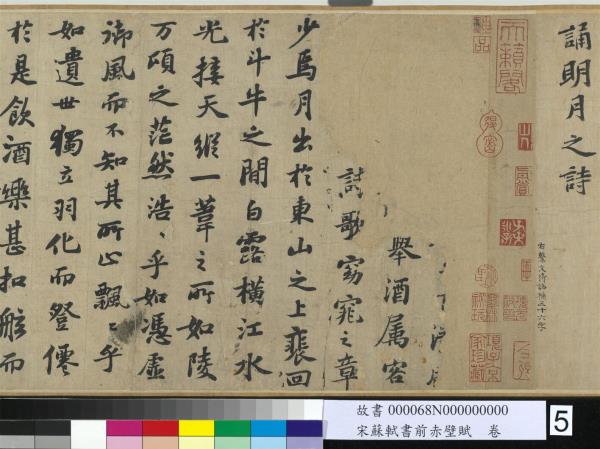 誦明月之詩
右繫文待詔補三十六字
天籟閣
舉酒属客
詩歌窈窕之章
少焉月出於東山之上裵回
於斗牛之間白露橫江水
光接天縱一葦之所如陵
万頃之茫然浩〻乎如馮虛
御風而不知其所止飄〻乎
如遺世獨立羽化而登僊
於是飲酒樂甚扣舷而
故書 000068N000000000
宋蘇軾書前赤壁賦 卷
5